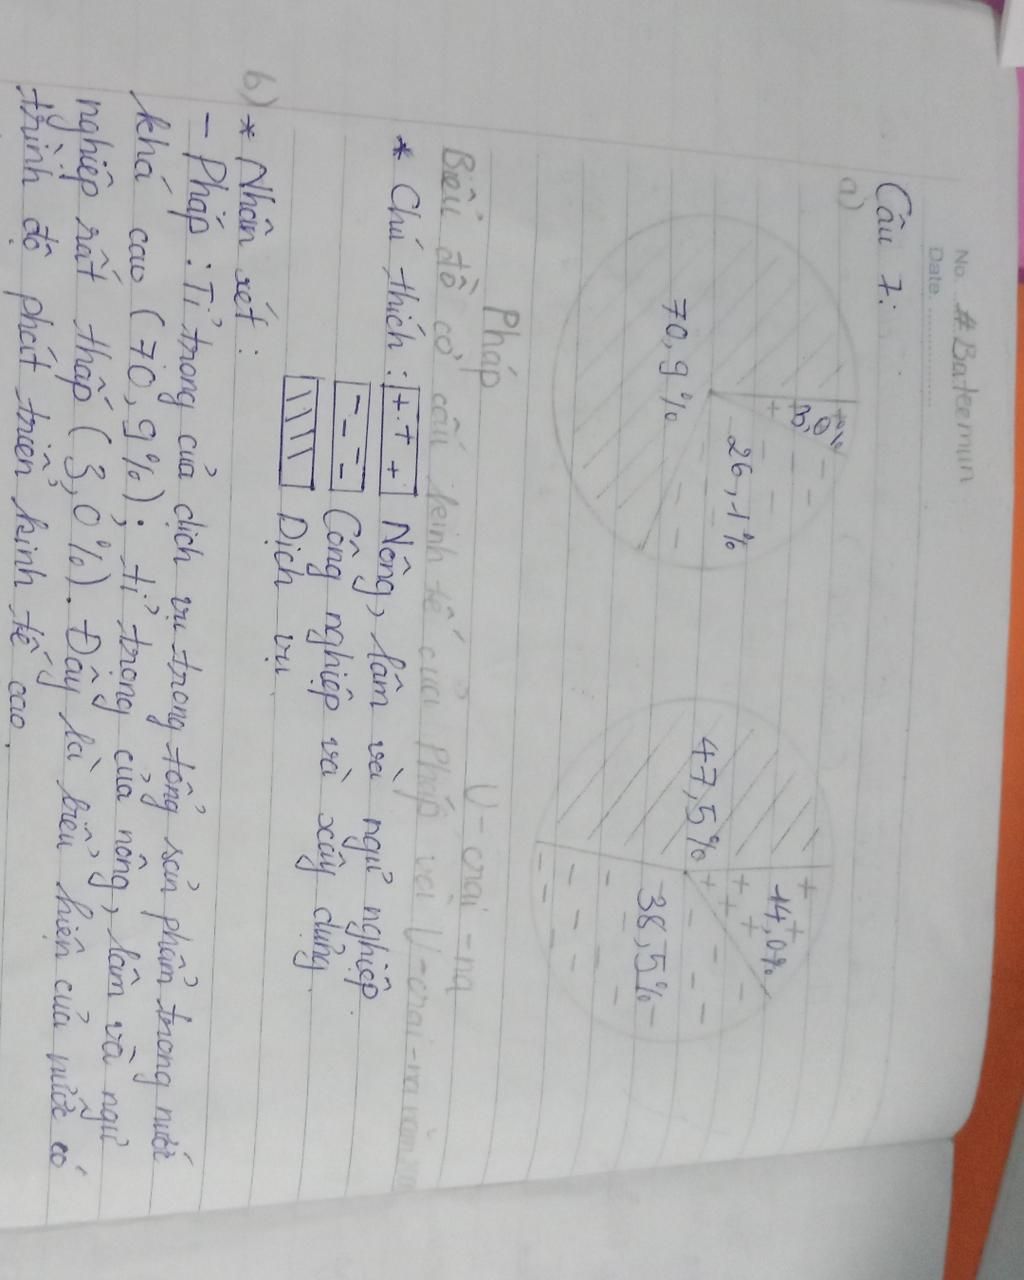 No. # Bateemun
Date.
Câu 7:
a)
3,0%
26,1%
70,9%
14,0%
47,5%
38,5%
Pháp
U-crai-na
Biểu đồ cơ cấu kinh tế của Pháp và U-crai-na năm
* Chú thích: Nông, lâm và ngư nghiệp
Công nghiệp và xây dựng.
Dịch vụ
b) * Nhận xét:
- Pháp: Tỉ trọng của dịch vụ trong tổng sản phẩm trong nước
khá cao (70,9%); tỉ trọng của nông, lâm và ngư
nghiệp rất thấp (3,0%). Đây là biểu hiện của nước có
trình độ phát triển kinh tế cao.